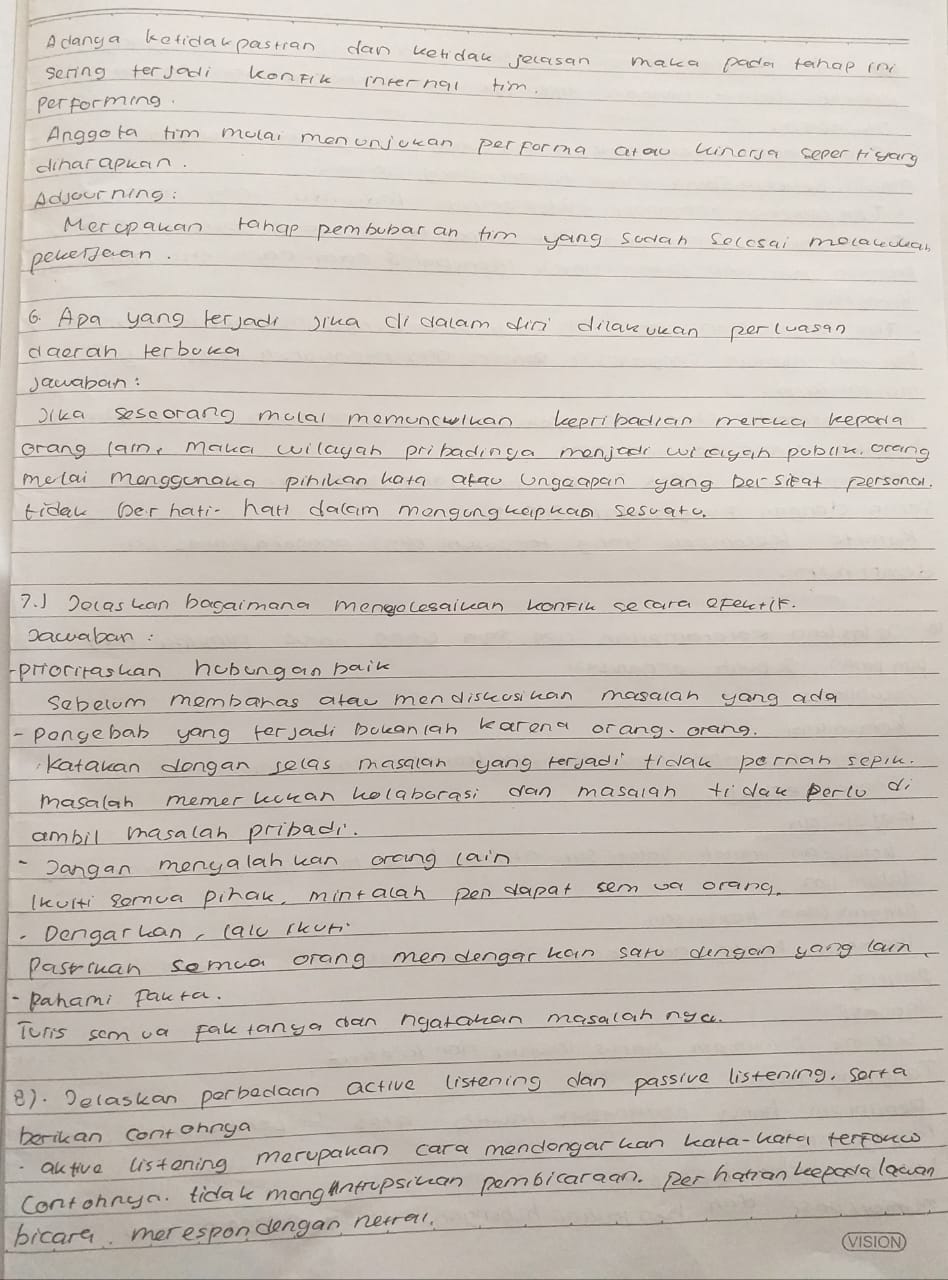 Adanya ketidakpastian dan ketidak jelasan maka pada tahap ini
sering terjadi konfik internal tim.
performing.
Anggota tim mulai menunjukan performa atau kinerja seperti yang
diharapkan.
Adjourning:
Merupakan tahap pembubaran tim yang sudah selesai melakukan
pekerjaan.
6. Apa yang terjadi jika di dalam diri dilakukan perluasan
daerah terbuka
Jawaban:
Jika seseorang mulai memunculkan kepribadian mereka kepada
orang lain, maka wilayah pribadinya menjadi wilayah publik. orang
mulai menggunaka pihikan kata atau ungaapan yang bersifat personal.
tidak berhati-hati dalam mengungkapkan sesuatu.
7.) Jelaskan bagaimana mengelesaikan konfik secara efektif.
Jawaban:
-prioritaskan hubungan baik
Sebelum membahas atau mendiskusikan masalah yang ada
- pengebab yang terjadi bukanlah karena orang-orang.
katakan dengan jelas masalah yang terjadi tidak pernah sepik.
masalah memerlukan kolaborasi dan masalah tidak perlu di
ambil masalah pribadi.
- Jangan menyalahkan orang lain
Ikuiti semua pihak, mintalah pendapat semua orang.
- Dengarkan, lalu ikuti.
Pastikan semua orang mendengarkan satu dengan yang lain.
- pahami fakta.
Tulis semua faktanya dan ngatakan masalahnya.
8). Jelaskan perbedaan active listening dan passive listening, serta
berikan contohnya
- aktive listening merupakan cara mendengarkan kata-kata terfokus
Contohnya. tidak mengintrupsikan pembicaraan. perhatian keepada lawan
bicara. merespon dengan netral.
VISION